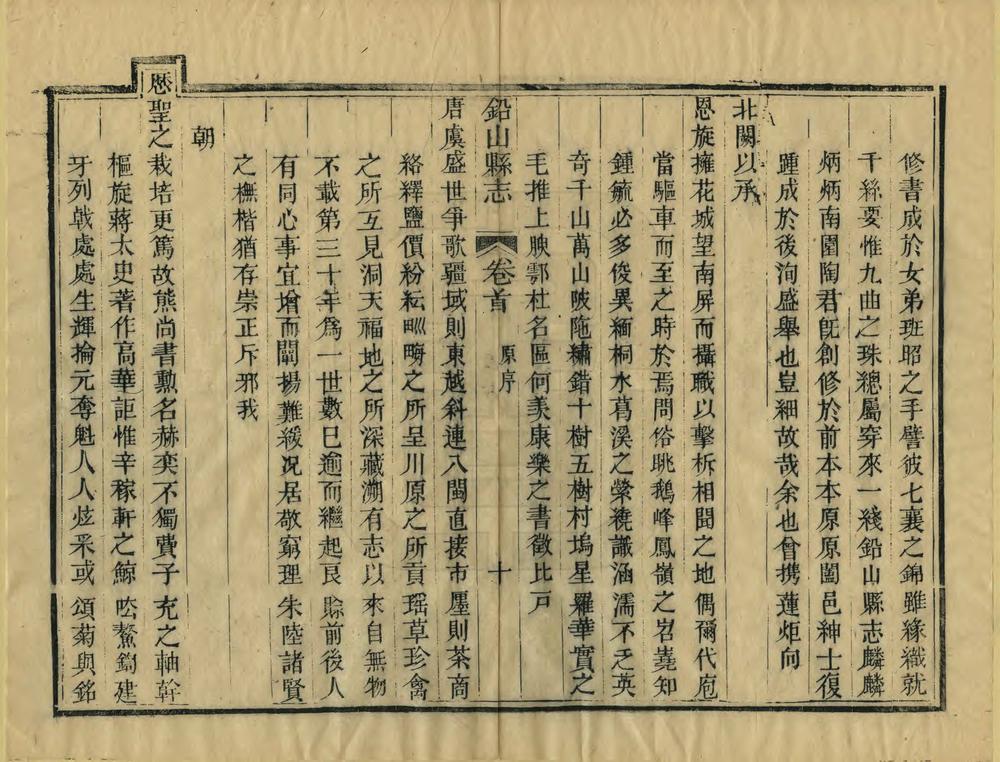 修書成於女弟班昭之手譬彼七襄之錦雖緣織就
千絲要惟九曲之珠總屬穿來一綫鉛山縣志麟麟
炳炳南圃陶君旣創修於前本本原原闔邑紳士復
踵成於後洵盛舉也豈細故哉余也曾携蓮炬向
北闕以承
恩旋擁花城望南屏而攝職以擊柝相聞之地偶爾代庖
當驅車而至之時於焉問俗眺鵝峰鳳嶺之岧嶤知
鍾毓必多俊異緬桐水葛溪之縈繞識涵濡不乏英
奇千山萬山陂陁繡錯十樹五樹村塢星羅華實之
毛推上腴鄠杜名區何羙康樂之書徵比戸
鉛山縣志 卷首 原序 十
唐虞盛世爭歌疆域則東越斜連八閩直接市廛則茶商
絡繹鹽價紛紜甽畮之所呈川原之所貢瑶草珍禽
之所互見洞天福地之所深藏溯有志以來自無物
不載第三十年爲一世數已逾而繼起艮賒前後人
有同心事宜增而闡揚難緩况居敬窮理朱陸諸賢
之橅楷猶存崇正斥邪我
朝
厯聖之栽培更篤故熊尚書勳名赫奕不獨費子充之軸幹
樞旋蔣太史著作高華詎惟辛稼軒之鯨呿鰲鑄建
牙列戟處處生輝掄元奪魁人人炫采或頌菊與銘